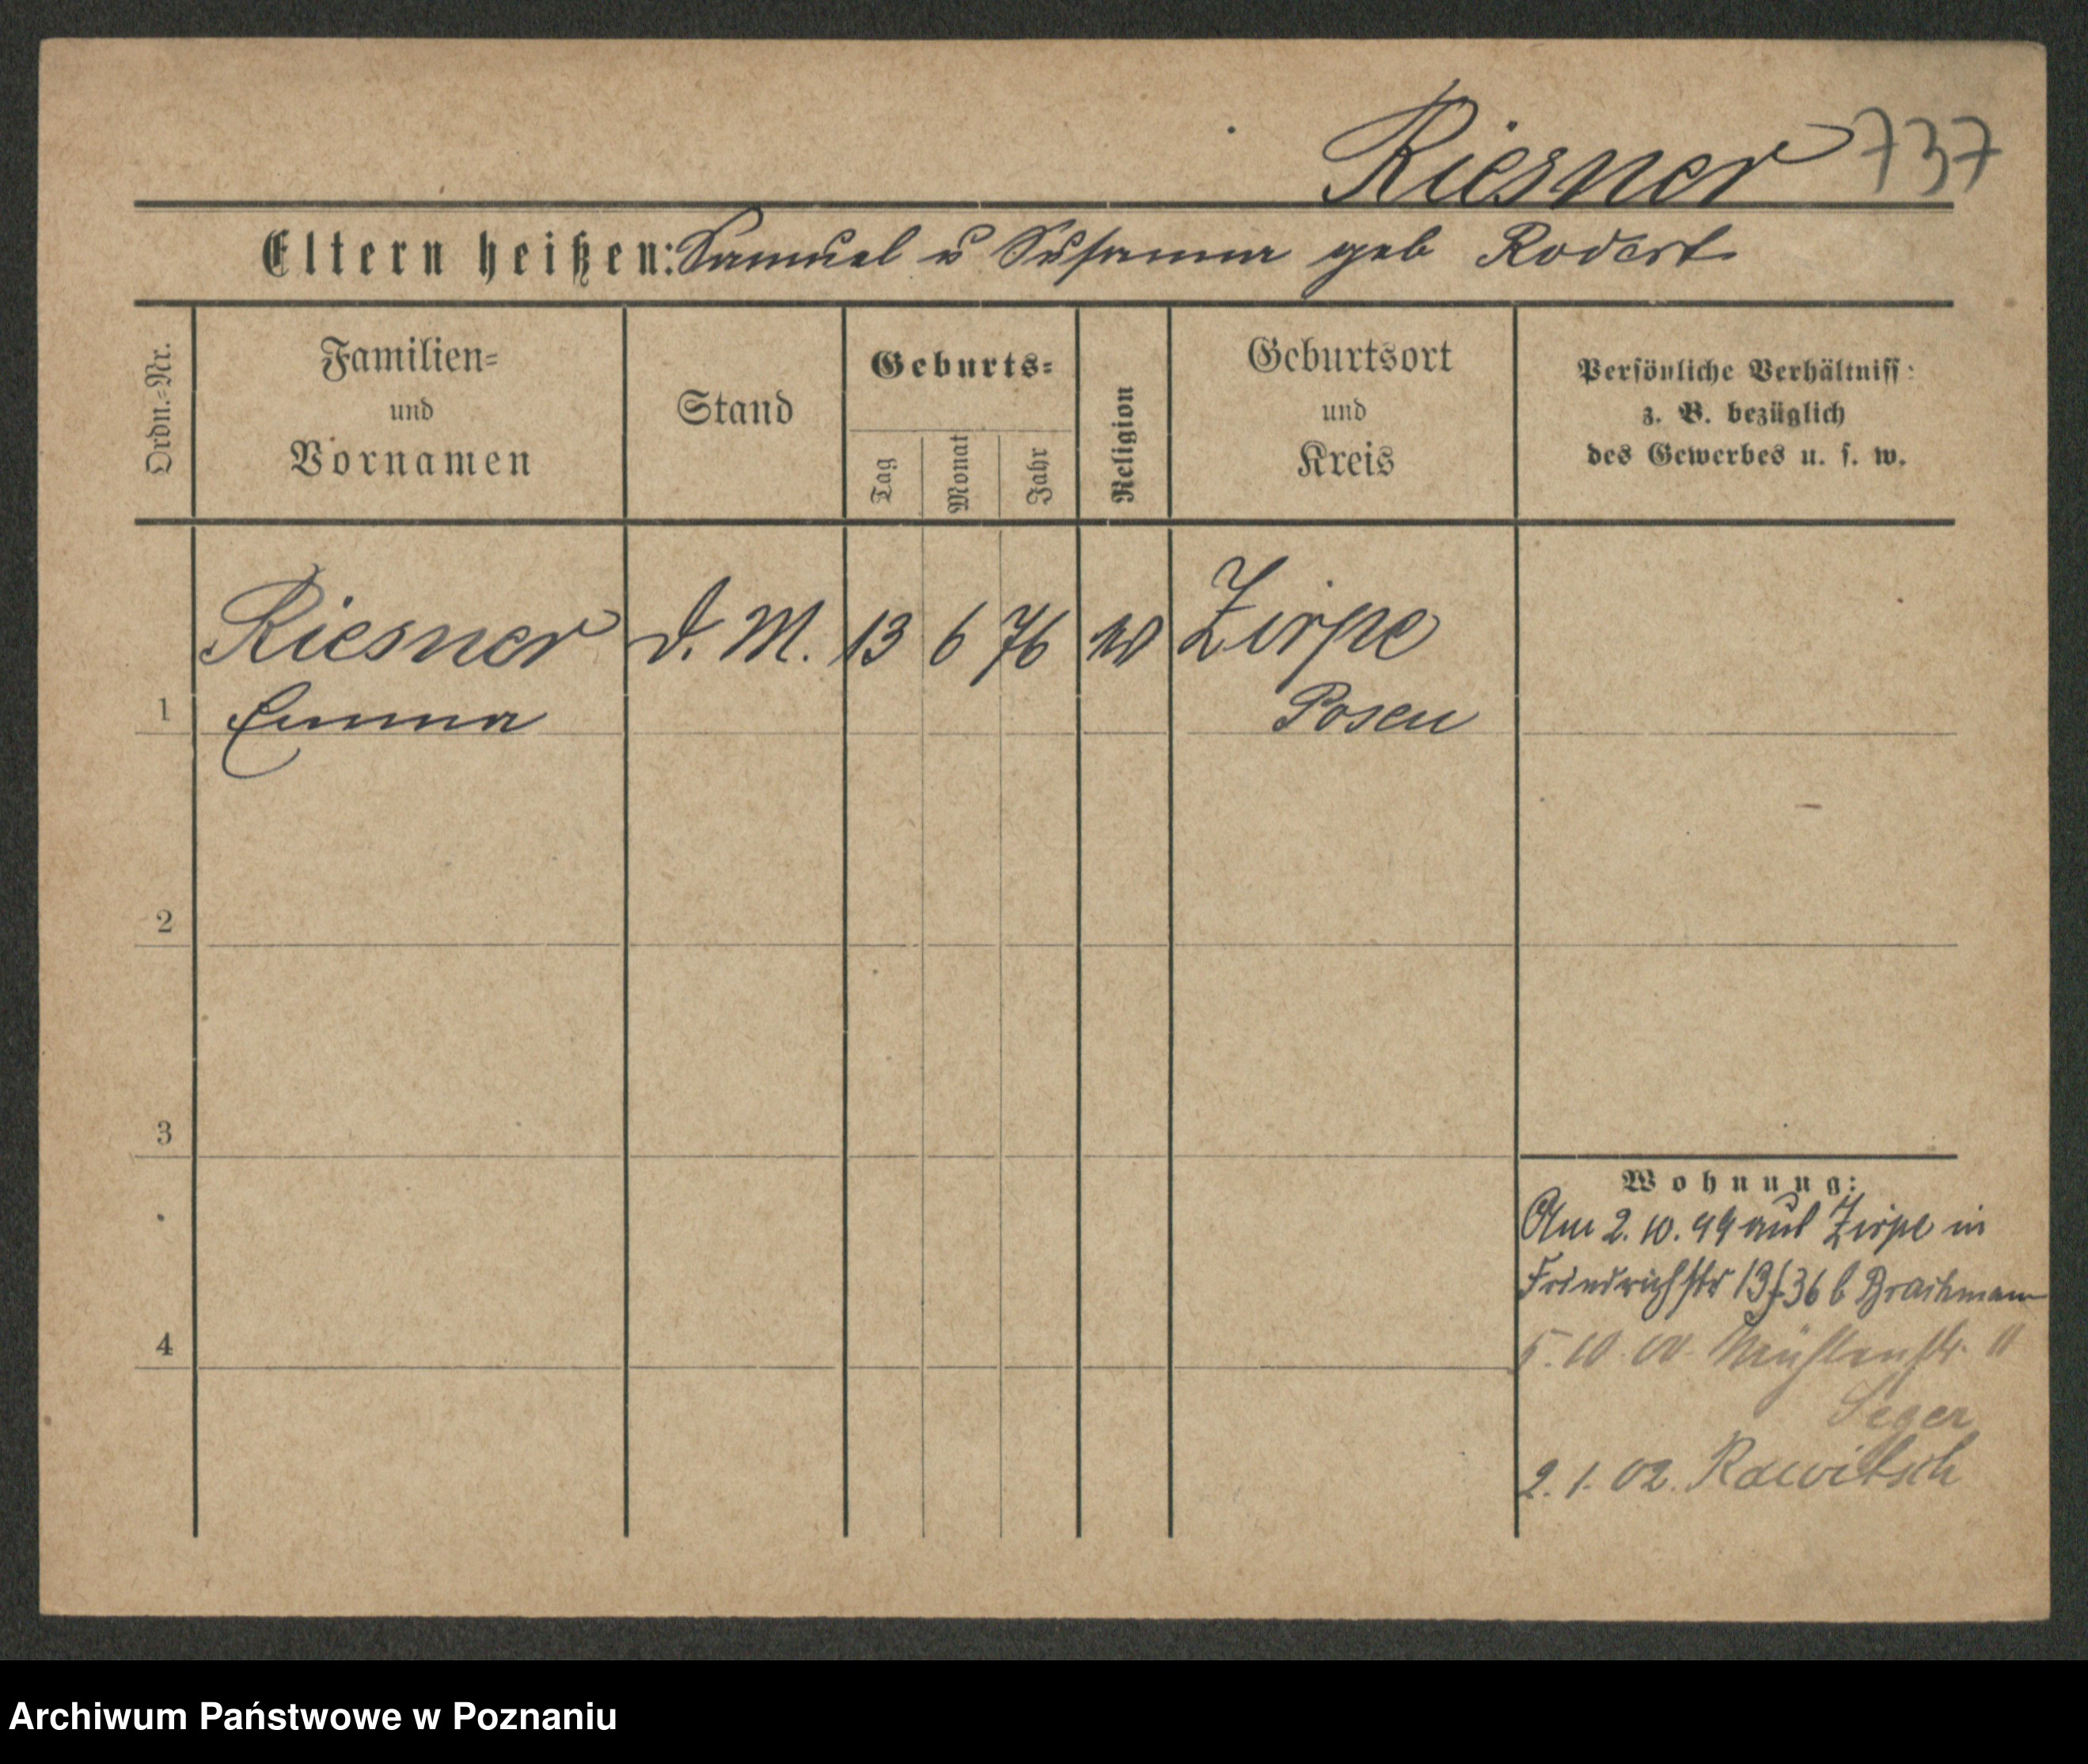 Riesner 737
Eltern heißen: Samuel u Susanna geb Rodert
Ordn.=Nr.
Familien=
und
Vornamen
Stand
Geburts=
Tag
Monat
Jahr
Religion
Geburtsort
und
Kreis
Persönliche Verhältniss:
z. B. bezüglich
des Gewerbes u. s. w.
Riesner d. M. 13 6 76 Zirpe
1 Emma Posen
2
3
4
Wohnung:
Am 2. 10. 99 aus Zirpe in
Friedrichstr 13/36 b Brachmann
5. 10. 00. Mühlenstr. 11
Seger
2. 1. 02. Rawitsch
Archiwum Państwowe w Poznaniu